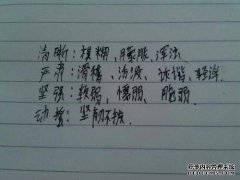 清晰：模糊、朦胧、浑浊
严肃：滑稽、活泼、诙谐、轻浮
坚强：软弱、懦弱、脆弱
动摇：坚韧不拔